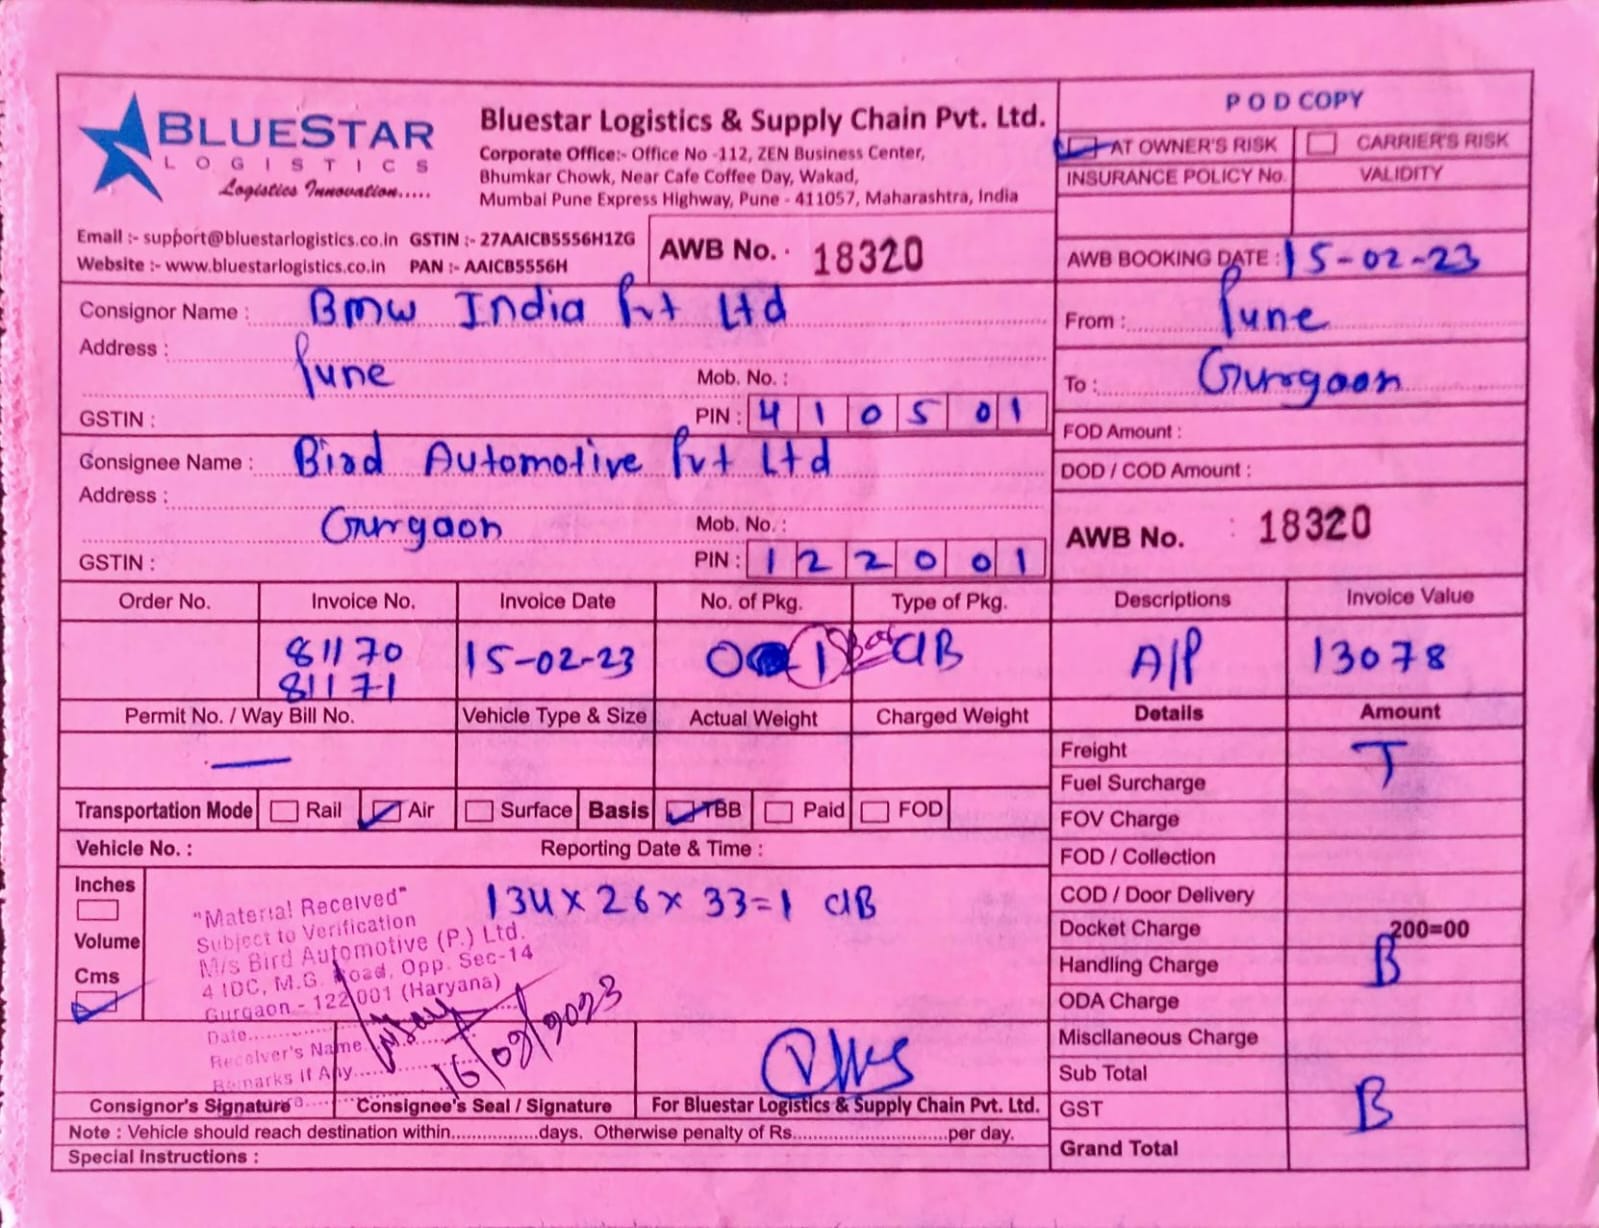 BLUESTAR
LOGISTICS
Logistics Innovation.....
Bluestar Logistics & Supply Chain Pvt. Ltd.
Corporate Office:- Office No -112, ZEN Business Center,
Bhumkar Chowk, Near Cafe Coffee Day, Wakad,
Mumbai Pune Express Highway, Pune - 411057, Maharashtra, India
Email :- support@bluestarlogistics.co.in GSTIN :- 27AAICB5556H1ZG
Website :- www.bluestarlogistics.co.in PAN :- AAICB5556H
AWB No. 18320
P O D COPY
AT OWNER'S RISK CARRIER'S RISK
INSURANCE POLICY No. VALIDITY
AWB BOOKING DATE : 15-02-23
Consignor Name : BMW India Pvt Ltd
Address : Pune
Mob. No. :
GSTIN : PIN : 410501
From : Pune
To : Gurgaon
FOD Amount :
DOD / COD Amount :
Consignee Name : Bird Automotive Pvt Ltd
Address : Gurgaon
Mob. No. :
GSTIN : PIN : 122001
AWB No. : 18320
Order No. Invoice No. Invoice Date No. of Pkg. Type of Pkg. Descriptions Invoice Value
81170 15-02-23 1 Box A/P 13078
81171
Permit No. / Way Bill No. Vehicle Type & Size Actual Weight Charged Weight Details Amount
—
Freight T
Fuel Surcharge
Transportation Mode Rail Air Surface Basis TBB Paid FOD
FOV Charge
Vehicle No. : Reporting Date & Time :
FOD / Collection
Inches
Volume
Cms
134 x 26 x 33 = 1
COD / Door Delivery
Docket Charge 200=00
Handling Charge B
ODA Charge
Miscllaneous Charge
Sub Total
GST B
Grand Total
"Material Received"
Subject to Verification
M/s Bird Automotive (P.) Ltd.
4 IDC, M.G. Road, Opp. Sec-14
Gurgaon - 122 001 (Haryana)
Date..........
Receiver's Name
Remarks If Any.....
16/02/2023
Consignor's Signature Consignee's Seal / Signature For Bluestar Logistics & Supply Chain Pvt. Ltd.
Note : Vehicle should reach destination within.................days. Otherwise penalty of Rs..............................per day.
Special Instructions :